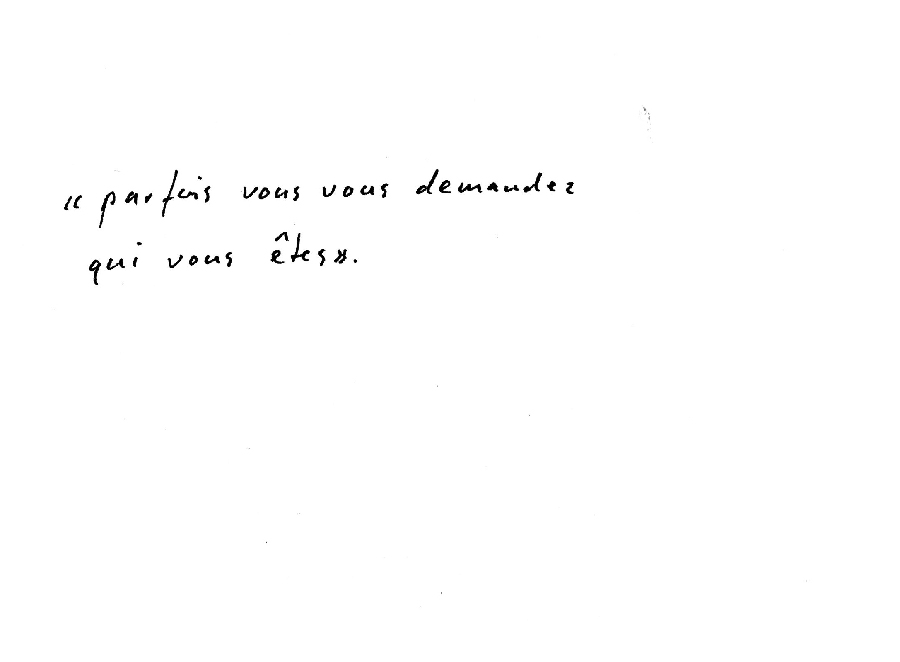 « parfois vous vous demandez
qui vous êtes ».